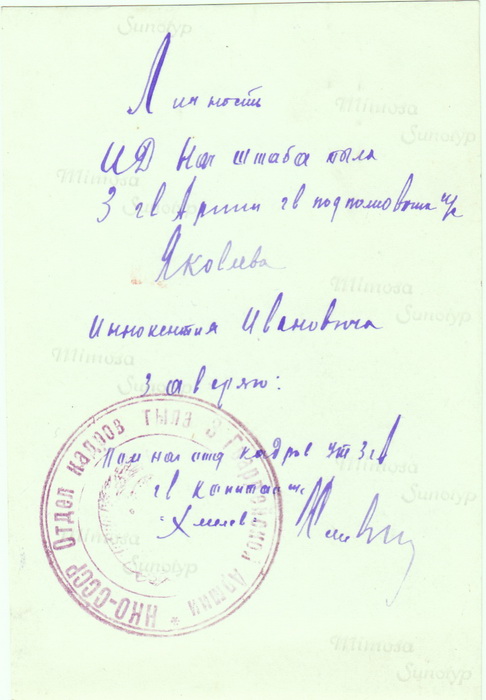 Личности
ИД Нач штаба тыла
3 гв Армии гв подполковника м/с
Яковлева
Иннокентия Ивановича
заверяю:
Пом нач отд кадров
гв капитан
"Хмелев"
НКО-СССР Отдел кадров тыла 3 Гвардейской Армии *
Mimosa
Sunotyp